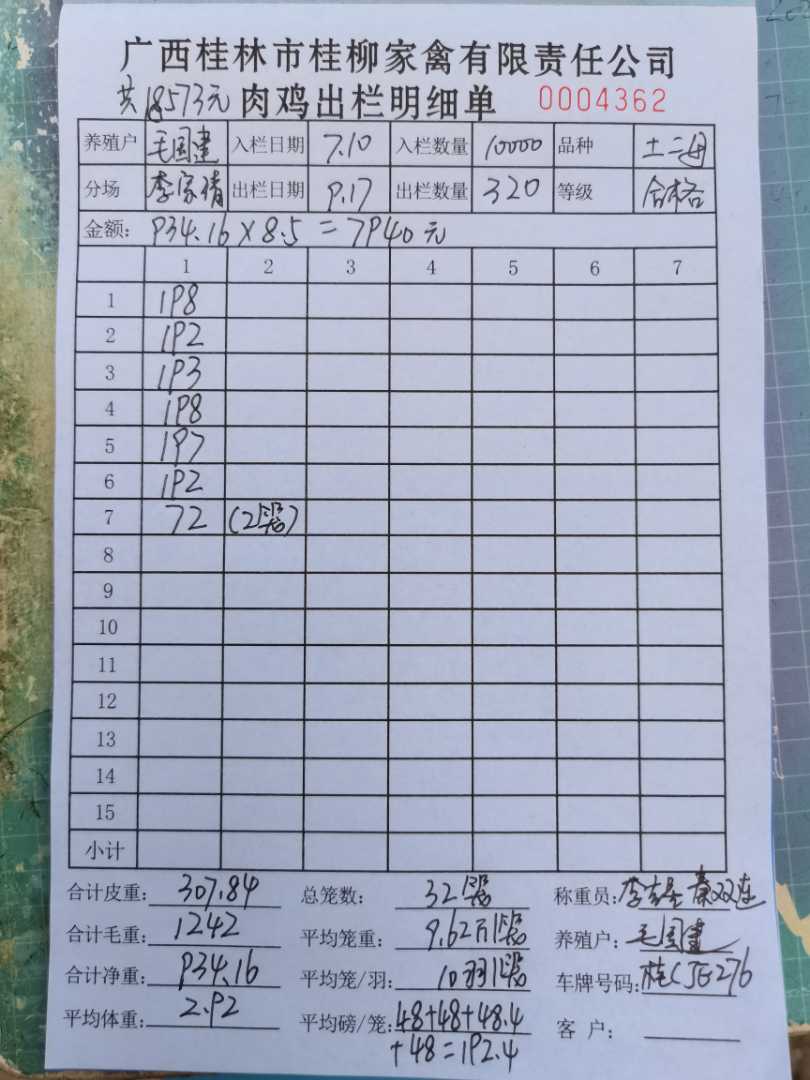 广西桂林市桂柳家禽有限责任公司
共18573元 肉鸡出栏明细单 0004362
养殖户 毛国建 入栏日期 7.10 入栏数量 10000 品种 土二母
分场 李家靖 出栏日期 9.17 出栏数量 320 等级 合格
金额: 934.16×8.5=7940元
1 2 3 4 5 6 7
1 198
2 192
3 193
4 198
5 197
6 192
7 72 (2笼)
8
9
10
11
12
13
14
15
小计
合计皮重: 307.84 总笼数: 32笼 称重员: 秦双连
合计毛重: 1242 平均笼重: 9.62 养殖户: 毛国建
合计净重: 934.16 平均笼/羽: 10羽/笼 车牌号码: 桂CJE276
平均体重: 2.92 平均磅/笼: 48+48+48.4
+48=192.4 客户: